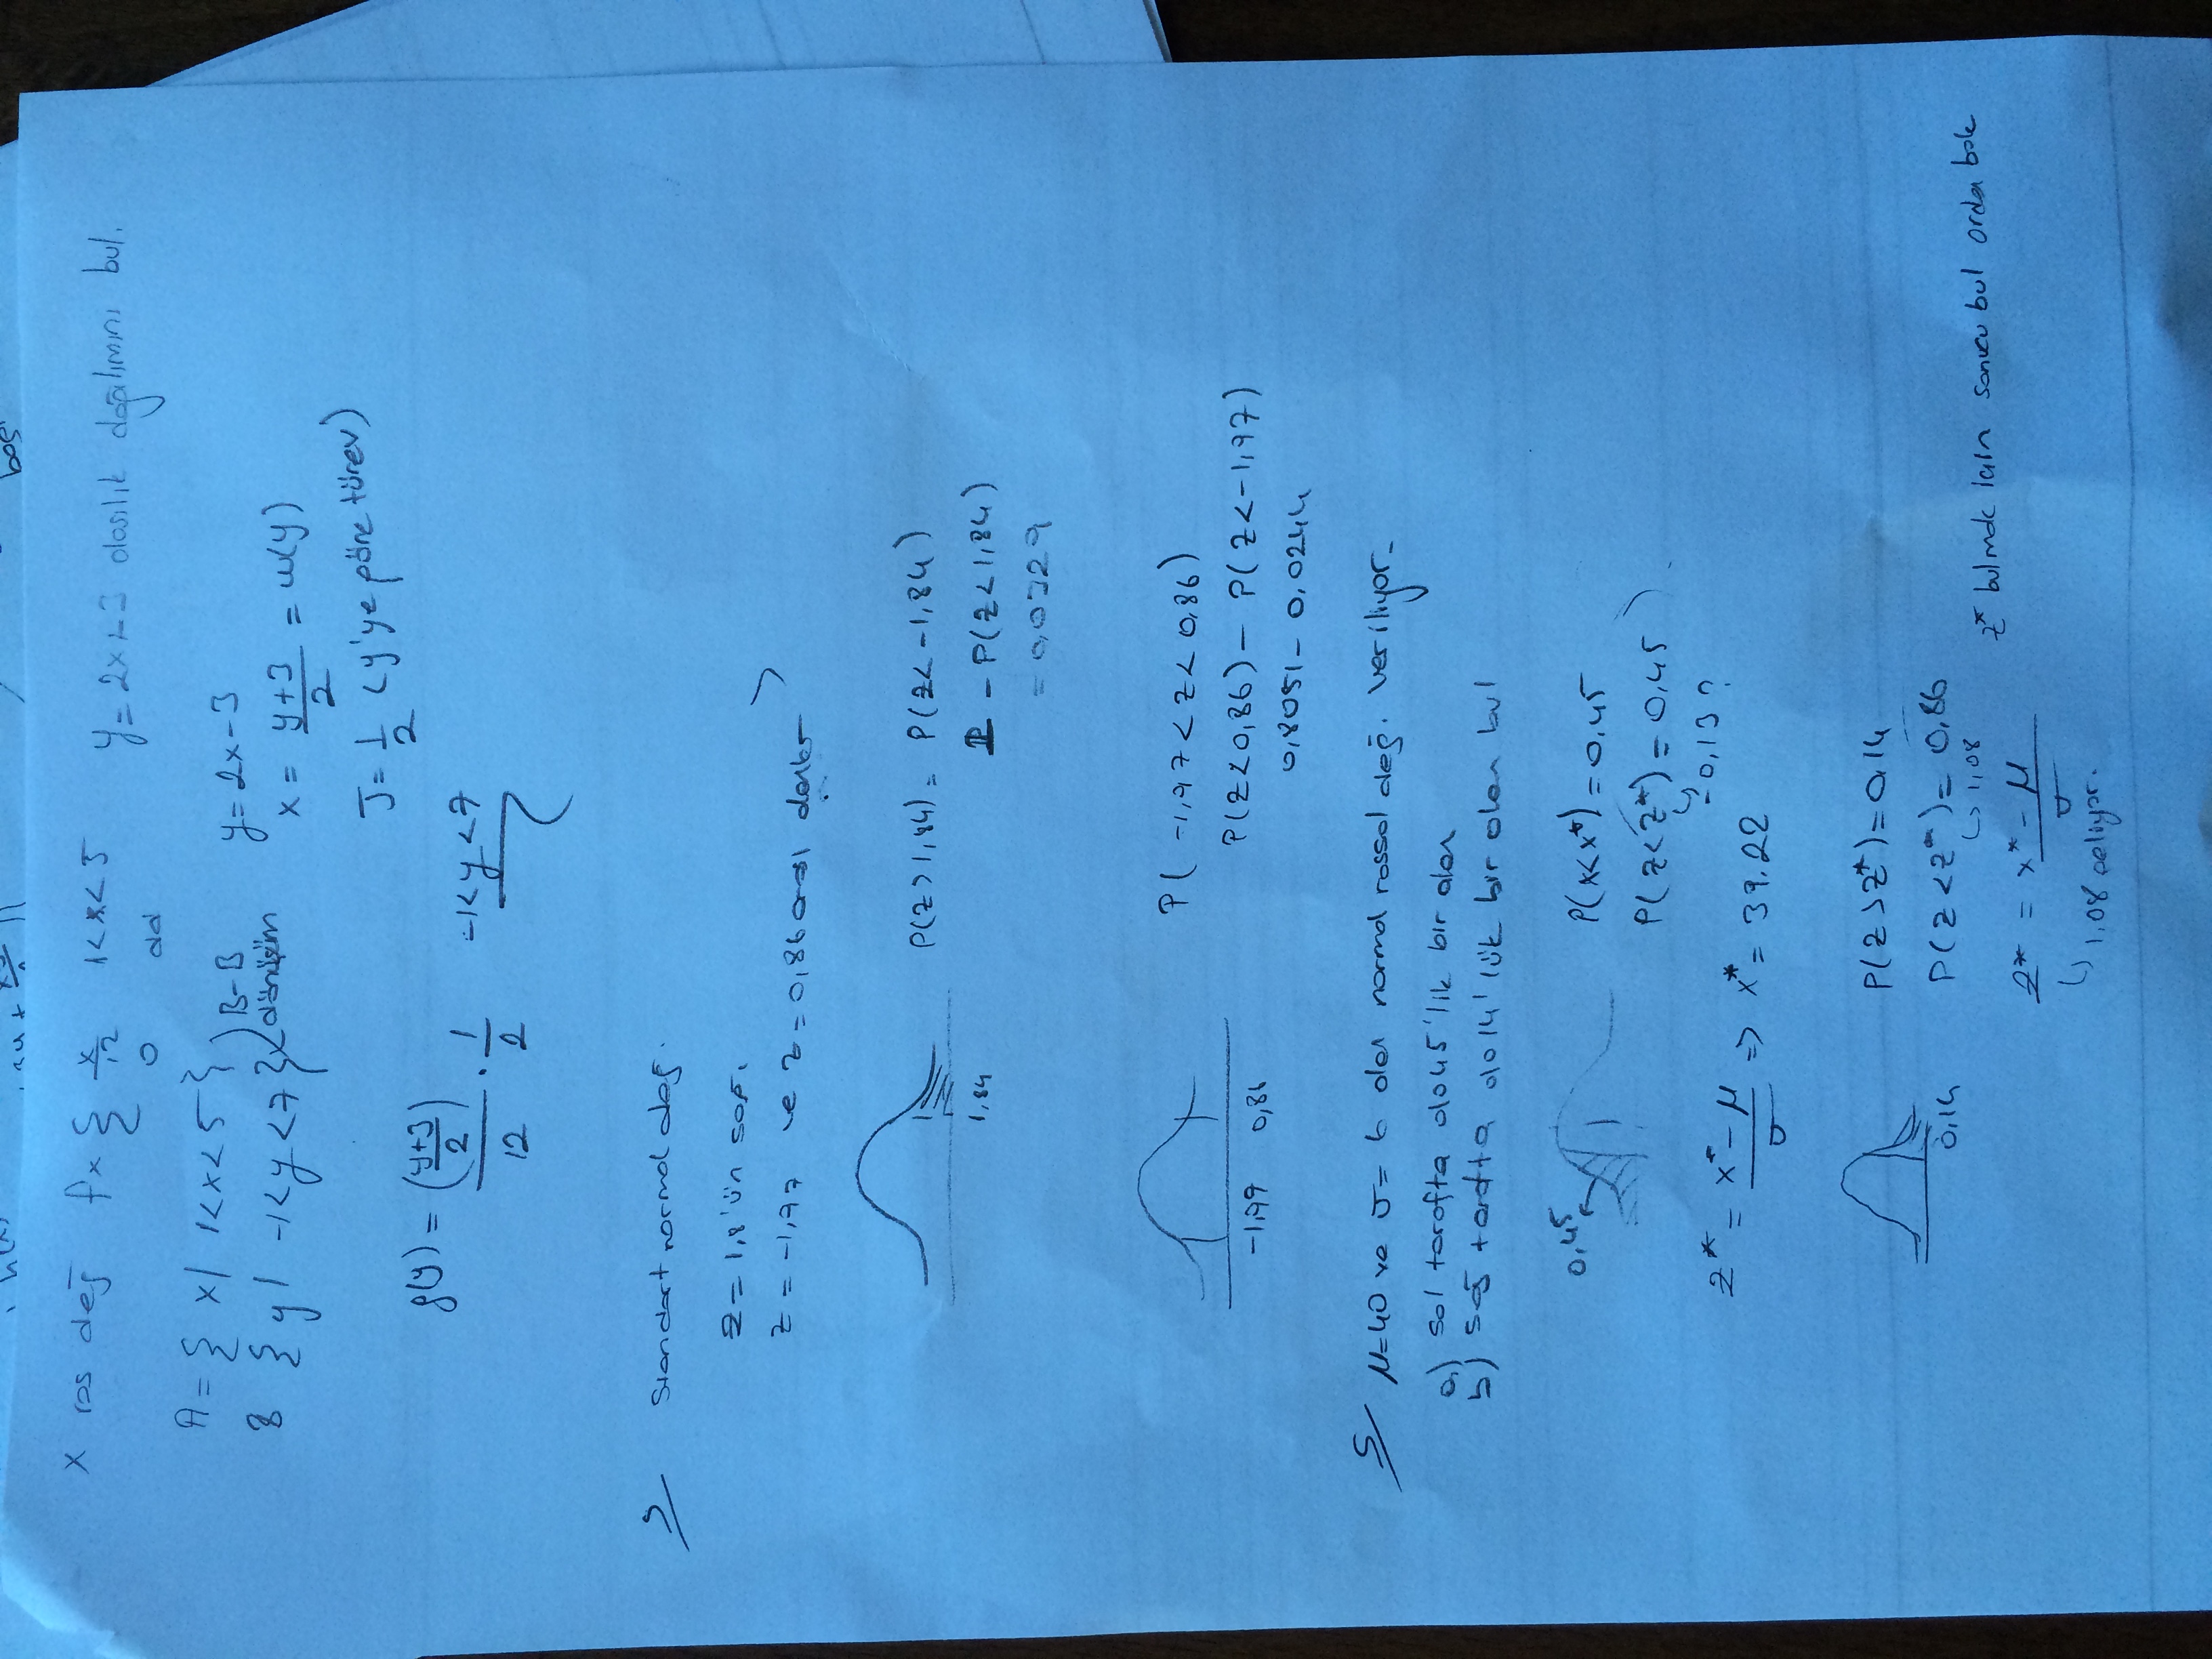 x ras değ f x { x/12 1<x<5 y = 2x-3 olasılık dağılımını bul.
0 dd
A = { x | 1<x<5 }
B { y | -1<y<7 } B-B dönüşüm
y = 2x-3
x = (y+3)/2 = w(y)
J = 1/2 (y'ye göre türev)
g(y) = ((y+3)/2)/12 · 1/2 -1<y<7
S Standart normal değ.
z = 1,8'ün sağı
z = -1,97 ve z = 0,86 arası
1,84
P(z>1,84) = P(z<-1,84)
1 - P(z<1,84)
= 0,0329
-1,97 0,86
P(-1,97<z<0,86)
P(z<0,86) - P(z<-1,97)
0,8051 - 0,0244
S μ=40 ve σ=6 olan normal rassal değ. veriliyor.
a) sol tarafta %45'lik bir alan
b) sağ tarafta %14'lük bir alan bul
0,45
P(x<x*) = 0,45
P(z<z*) = 0,45
-0,13 ?
z* = (x*-μ)/σ => x* = 39.22
0,14
P(z>z*) = 0.14
P(z<z*) = 0,86
↳ 1,08
z* bulmak için sonucu bul ordan bak
z* = (x*-μ)/σ
↳ 1.08 geliyor.